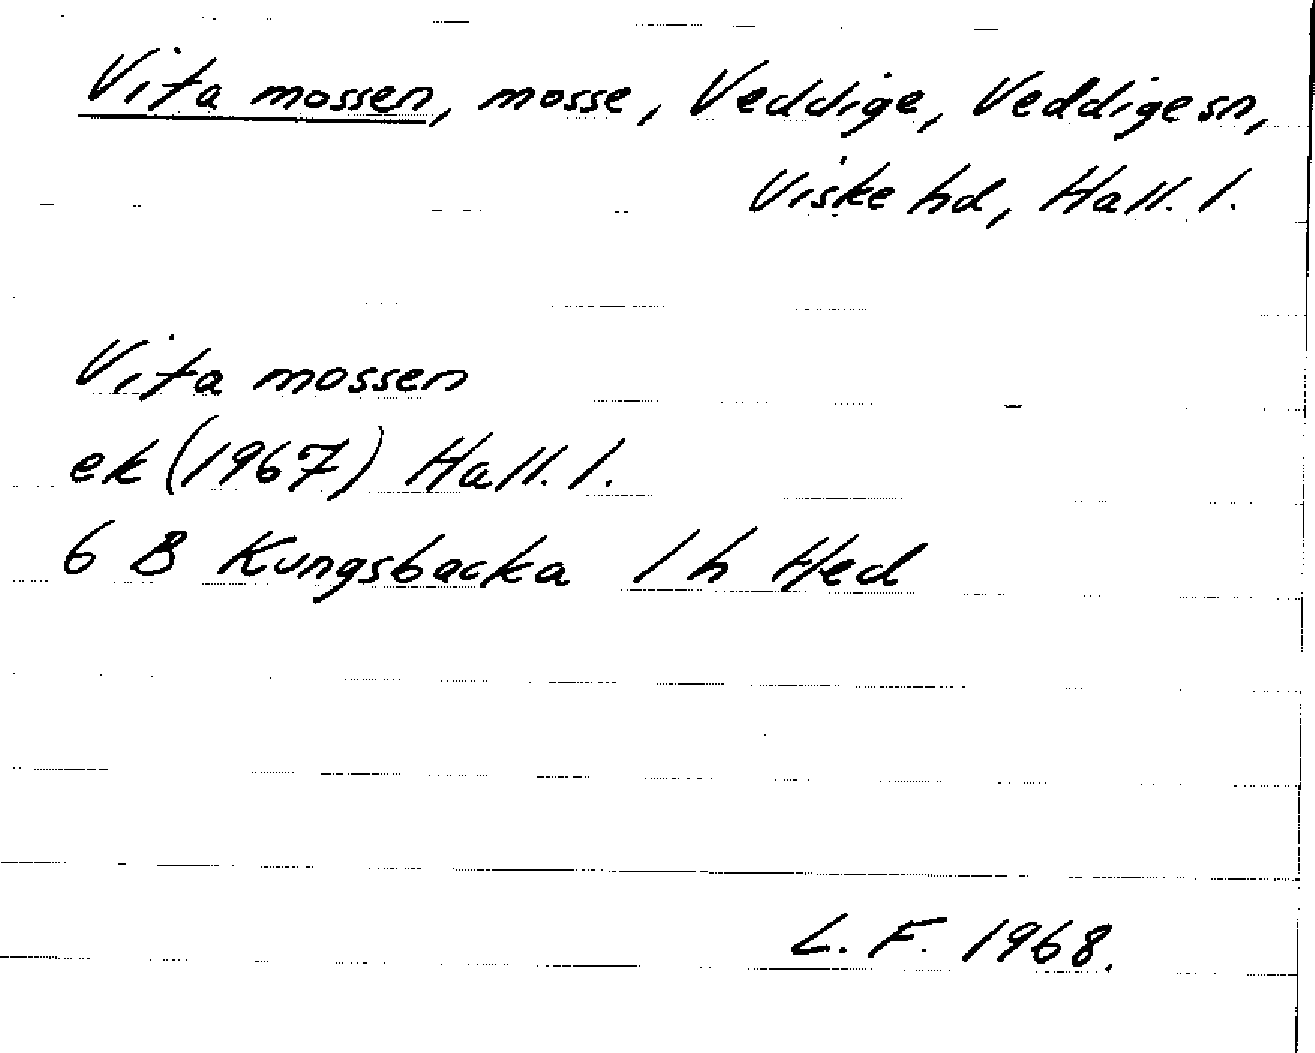 Vita mossen, mosse, Veddige, Veddige sn,
Viske hd, Hall. l.
Vita mossen
ek (1967) Hall. l.
6 B Kungsbacka 1 h Hed
L. F. 1968.